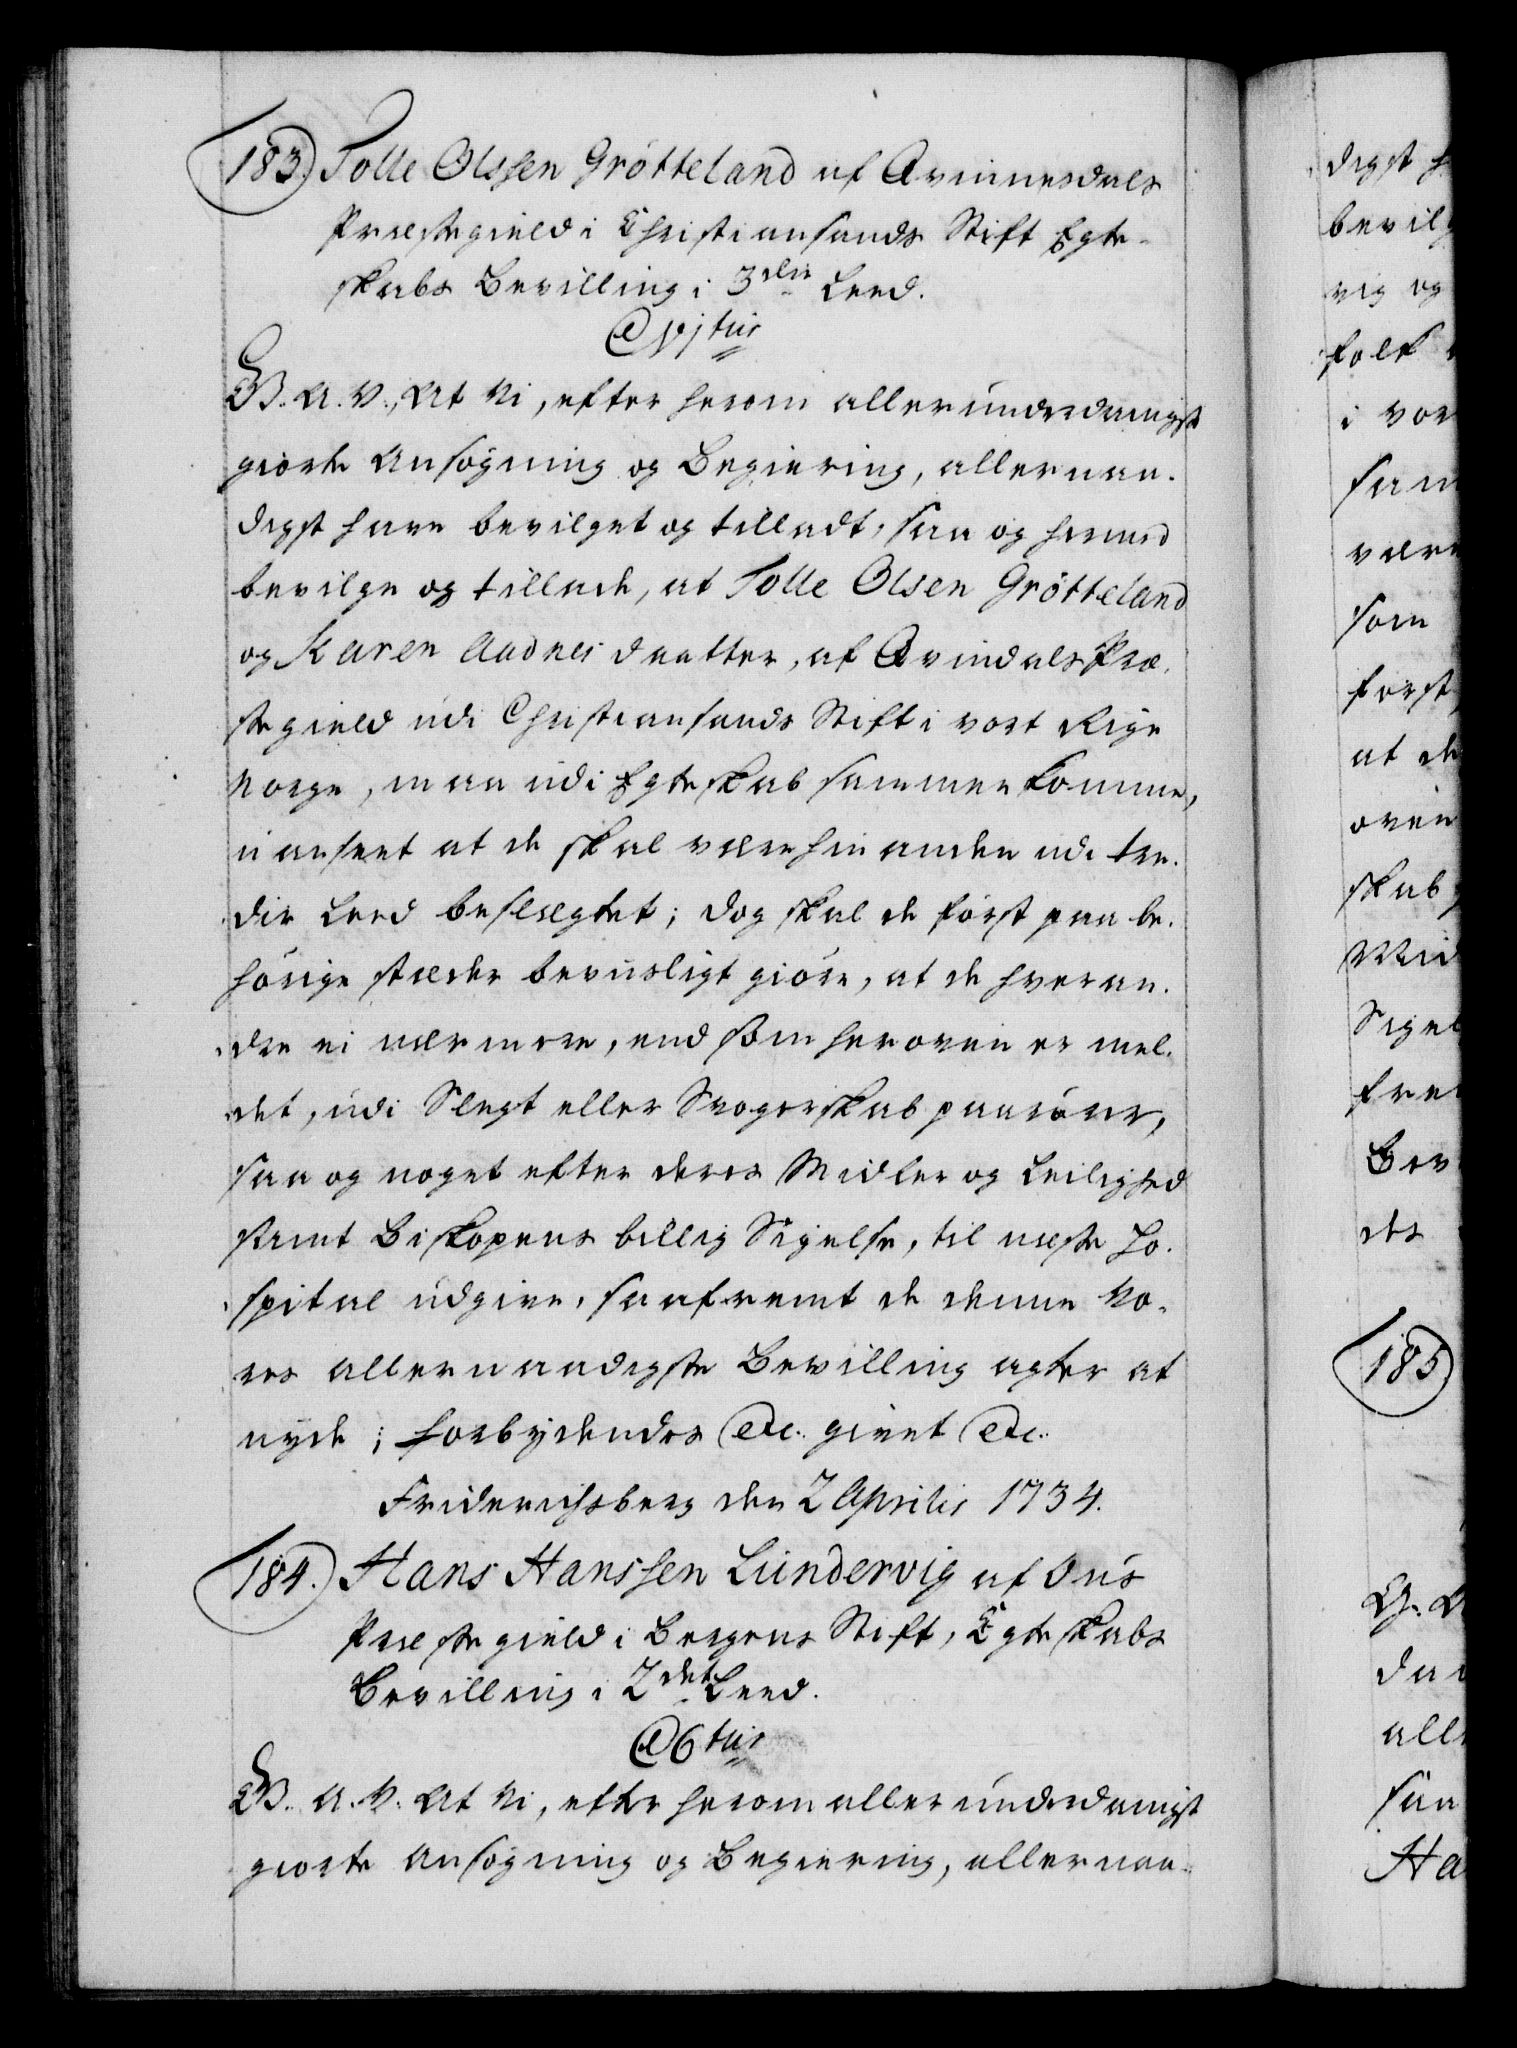 183. Tolle Olssen Grötteland af Qvinnesdals
Præstegield i Christiansands Stift Egte-
skabs Bevilling i 3die Leed.
G. A. V., At Vi, efter herom allerunderdanigst
giorte Ansøgning og Begiering, allernaa-
digst have bevilget og tilladt, saa og hermed
bevilge og tillade, at Tolle Olsen Grötteland
og Karen Aadnes daatter, af Qvindals Præ-
stegield udi Christiansands Stift i vort Rige
Norge, maa udi Egteskab sammenkomme,
uanseet at de skal være hinanden udi tre-
die Leed beslægtet; dog skal de først paa be-
hörige stæder beviisligt giöre, at de hveran-
dre ei nærmere, end som heroven er mel-
det, udi Slegt eller Svogerskab paarörer,
saa og noget efter deres Midler og Leilighed
samt Biskopens billig Sigelse, til næste Ho-
spital udgive, saafremt de denne Vo-
res allernaadigste Bevilling agter at
nyde; forbydendes etc. givet etc.
Friderichsberg den 2 Aprilis 1734.
184. Hans Hanssen Lundervig af Ous
Præstegield i Bergens Stift, Egteskabs
Bevilling i 2det Leed.
G. A. V. At Vi, efter herom allerunderdanigst
giorte Ansøgning og Begiering, allernaa-
digst
bevilg
vig og
folk
i vor
sam
være
som
forst
at de
oven
skab
Mid
Sigel
fre
Bev
des
185
G. A
da
all
saa
Ha